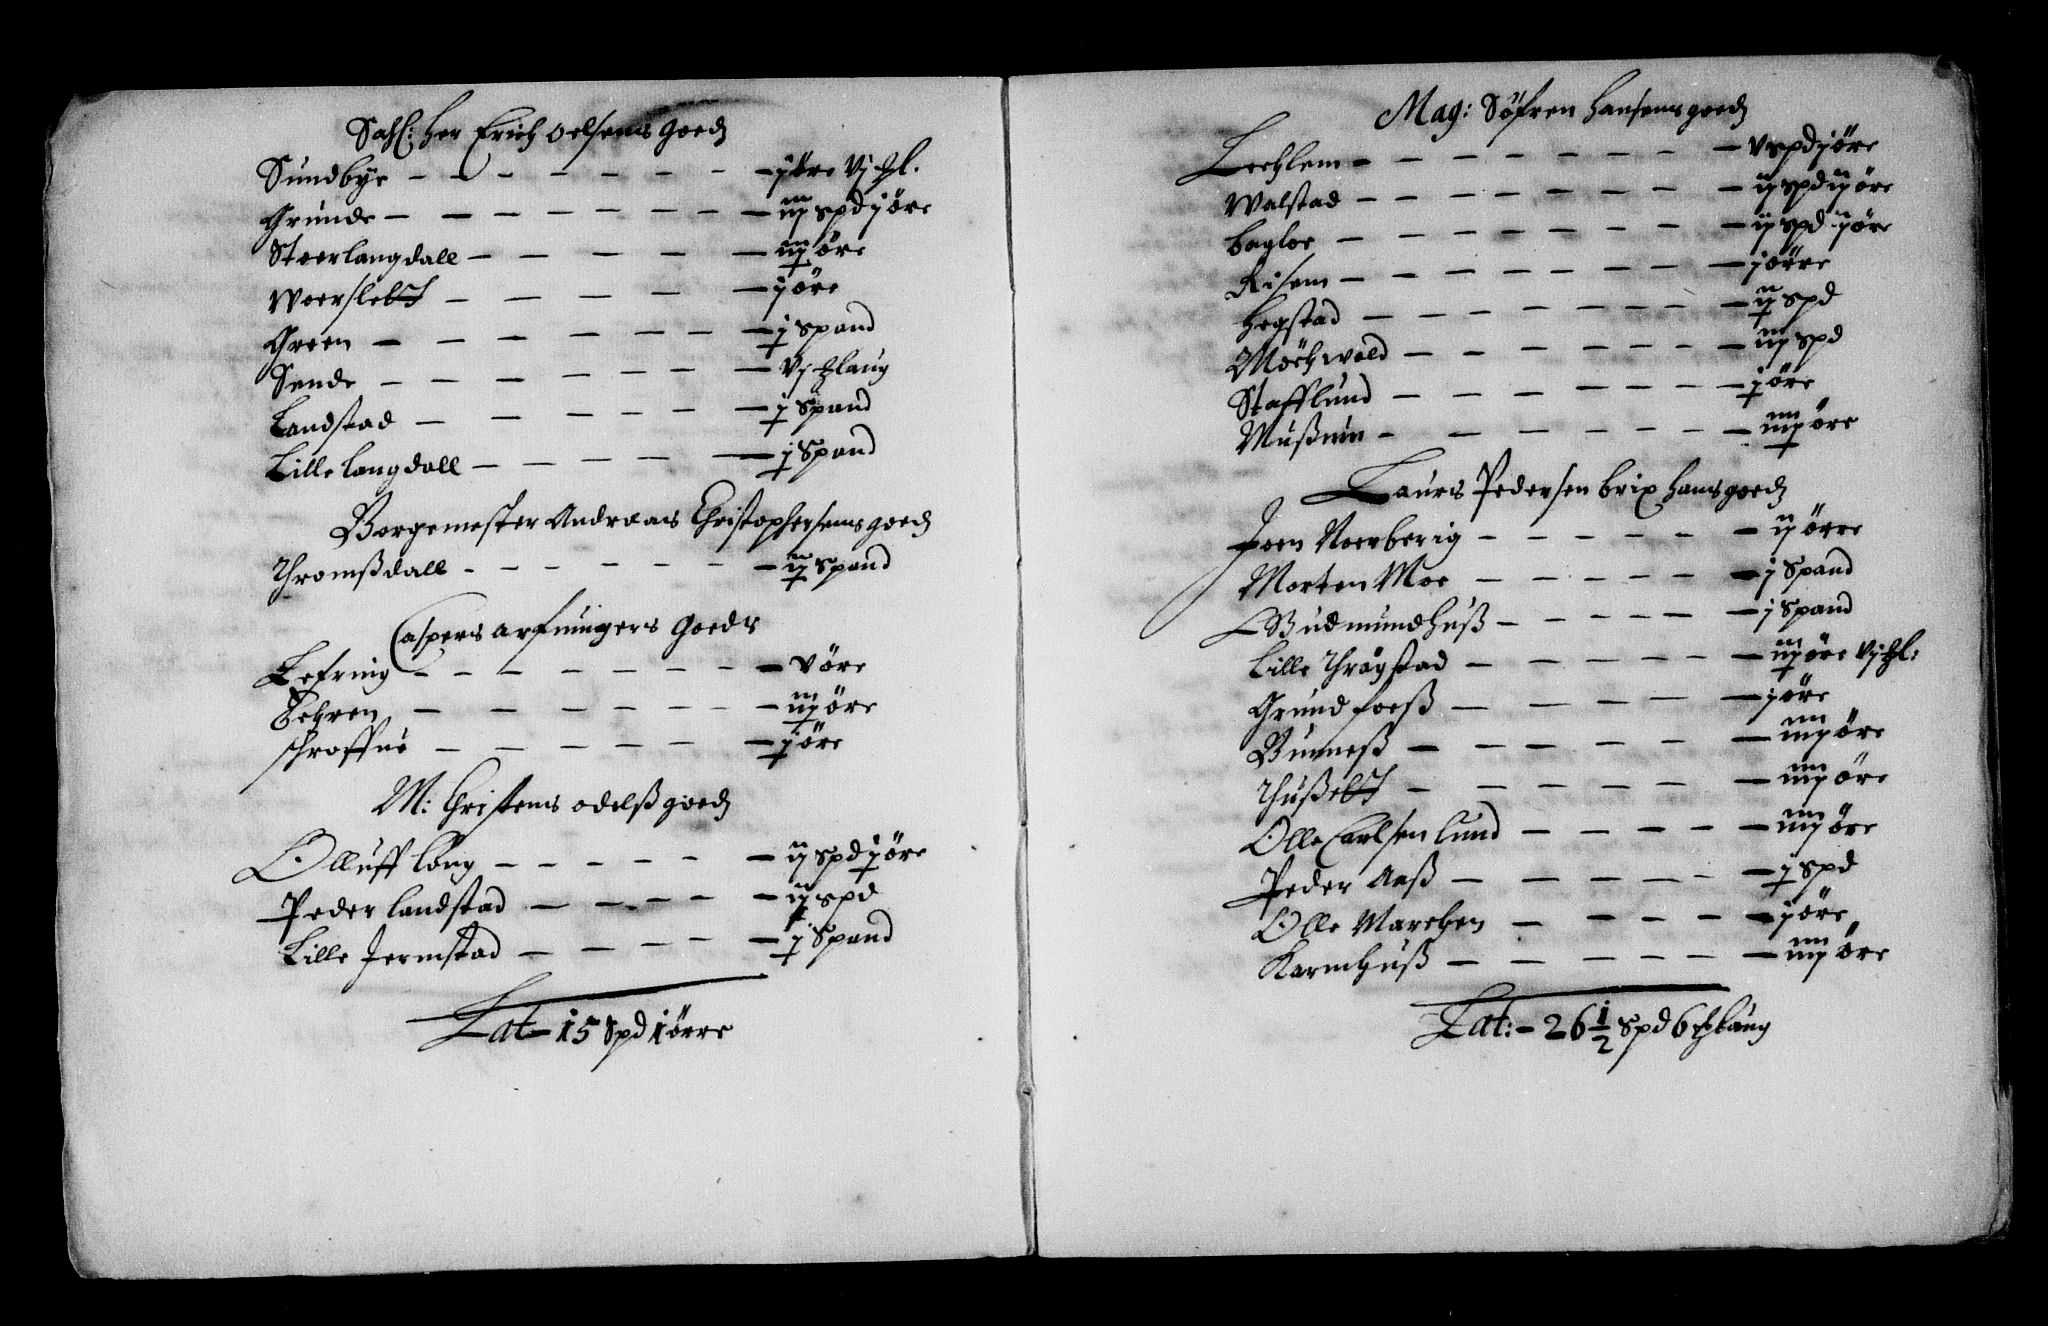 Sahl: her Erich oelsens goedz
Sundbye - - - - - - - - jøre vj ħl.
Grunde - - - - - - - - iij spd jøre
Stoerlangdall - - - - - iij øre
Woerslett - - - - - jøre
Green - - - - - - - j spand
Sende - - - - - - - vj ħlaug
Landstad - - - - - - j spand
Lille langdall - - - - - - j Spand
Borgemester Andreas Christophersens goedz
Thromßdall - - - - - - - ij spand
Caspers arfuingers goedz
Lefring - - - - - - - - v øre
Sehren - - - - - - - iij øre
schroffue - - - - - - - j øre
M: Christens odelß goedz
Olluff long - - - - - - ij spd j øre
Peder landstad - - - - - - ij spd
Lille Jermstad - - - - - - j Spand
Lat - 15 Spd 1 ørre
Mag: Søfren hansens goedz
Lechlem - - - - - - - - v spd jøre
Walstad - - - - - - - - ij spd ij øre
bagloe - - - - - - - - ij spd ij øre
Risem - - - - - - - - jørre
hegstad - - - - - - - - ij spd
Möchwold - - - - - - - iij spd
Stafflund - - - - - - - j øre
Mußum - - - - - - - iiij øre
Laurs Pedersen brix hans goedz
Joen Noerberig - - - - - - ij ørre
Morten Moe - - - - - - j Spand
Gudmundhuß - - - - - - j spand
Lille Thrøgstad - - - - - - iij øre vj ħl:
Grundfoeß - - - - - - jøre
Bunneß - - - - - - iiij øre
Thußett - - - - - - iiij øre
Olle Carlsen lund - - - - - iiij øre
Peder Aaß - - - - - - j spd
Olle Marchen - - - - - jøre
Karmhuß - - - - - - - iiij øre
Lat: - 26 1/2 Spd 6 ħlaug